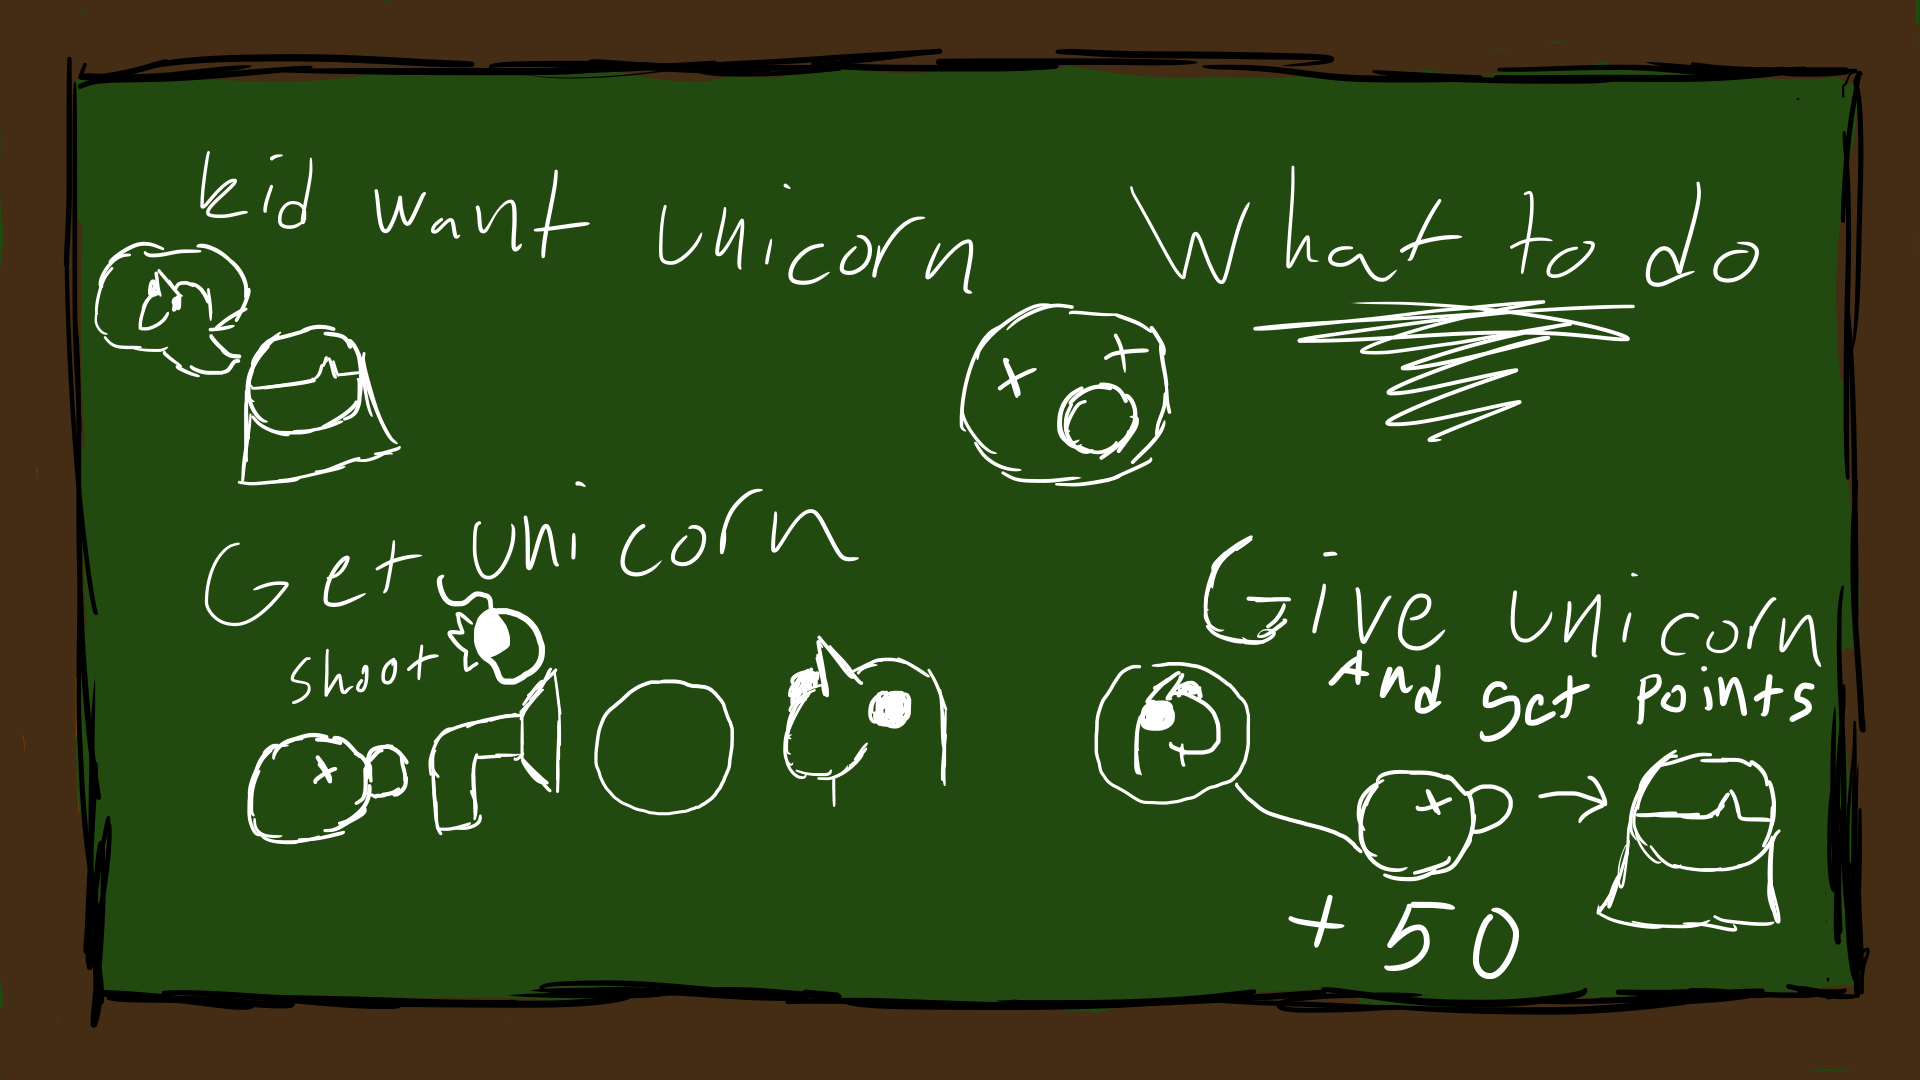 kid want unicorn
What to do
Get unicorn
shoot
Give unicorn
And get points
+50